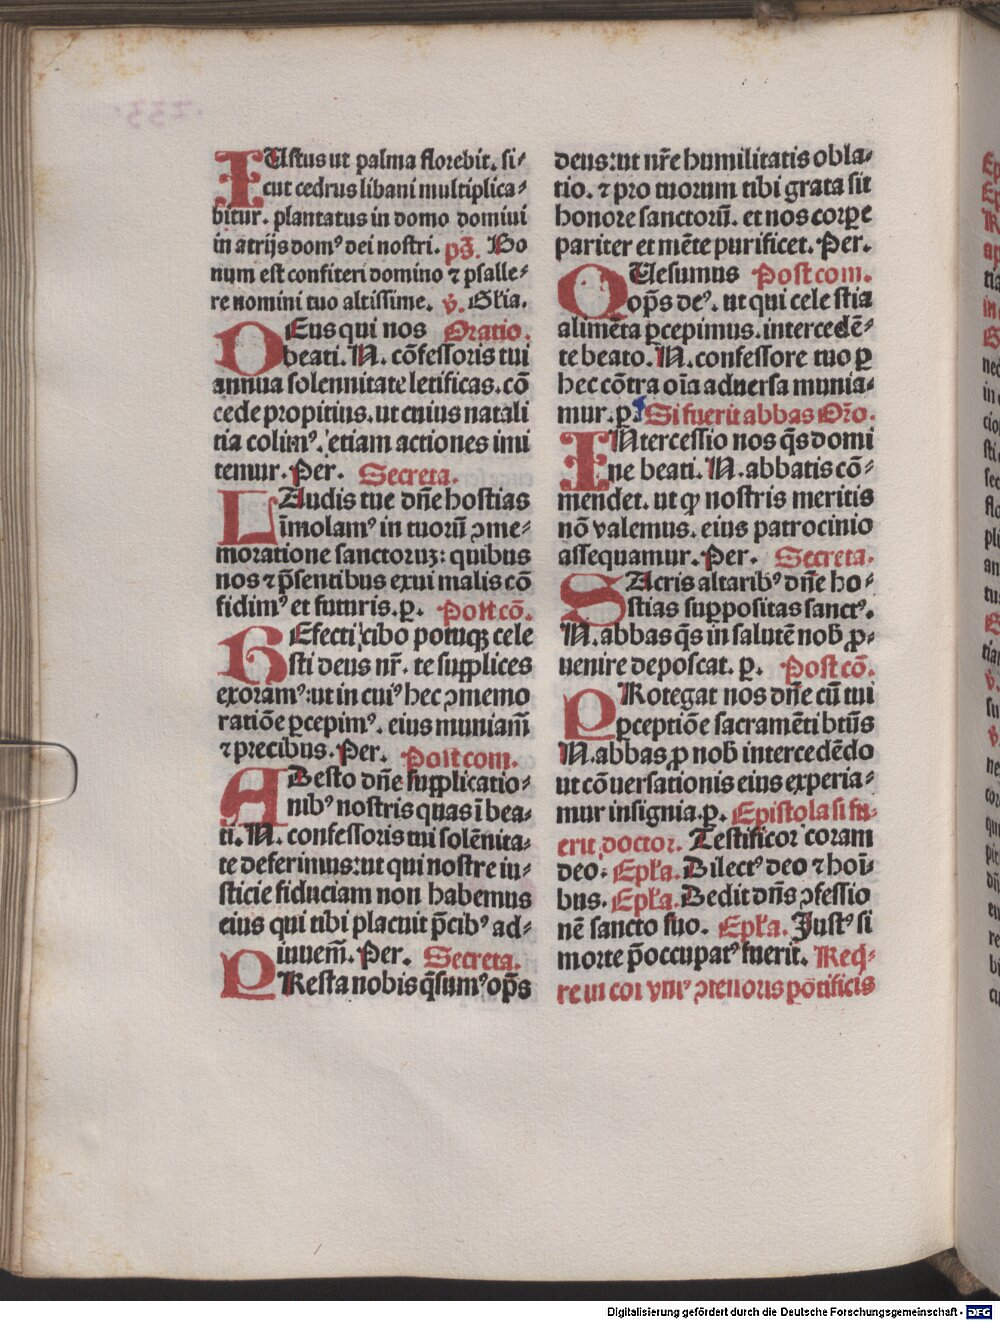 IUstus ut palma florebit. si⸗
cut cedrus libani multiplica⸗
bitur. plantatus in domo domini
in atrijs domꝰ dei nostri. ps̄. Bo
num est confiteri domino ⁊ psalle⸗
re nomini tuo altissime. v̄. Gl'ia.
DEus qui nos Oratio.
beati. N. cōfessoris tui
annua solennitate letificas. cō
cede propitius. ut cuius natali
tia colimꝰ. etiam actiones imi
temur. Per. Secreta.
LAudis tue dn̄e hostias
īmolamꝰ in tuorū ꝯme⸗
moratione sanctoruꝫ: quibus
nos ⁊ p̄sentibus exui malis cō
fidimꝰ et futuris. p. Post cō.
REfecti cibo potuqꝫ cele
sti deus nr̄. te supplices
exoramꝰ: ut in cuiꝰ hec ꝯmemo
ratiōe ꝑcepimꝰ. eius muniam̄
⁊ precibus. Per. Post com.
ADesto dn̄e supplicatio⸗
nibꝰ nostris quas ī bea⸗
ti. N. confessoris tui solēnita⸗
te deferimus: ut qui nostre iu⸗
sticie fiduciam non habemus
eius qui tibi placuit p̄cibꝰ ad⸗
iuuem̄. Per. Secreta.
PResta nobis q̄sumꝰ op̄s
deus: ut nr̄e humilitatis obla⸗
tio. ⁊ pro tuorum tibi grata sit
honore sanctorū. et nos corpe
pariter et mēte purificet. Per.
QUesumus Post com.
op̄s deꝰ. ut qui celestia
alimēta ꝑcepimus. intercedē⸗
te beato. N. confessore tuo ꝑ
hec cōtra oīa aduersa munia⸗
mur. p. Si fuerit abbas Or̄o.
INtercessio nos q̄s domi
ne beati. N. abbatis cō⸗
mendet. ut ꝙ nostris meritis
nō valemus. eius patrocinio
assequamur. Per. Secreta.
SAcris altaribꝰ dn̄e ho⸗
stias suppositas sanctꝰ.
N. abbas q̄s in salutē nob̄ ꝓ⸗
uenire deposcat. p. Post cō.
PRotegat nos dn̄e cū tui
ꝑceptiōe sacramēti btūs
N. abbas ꝓ nob̄ intercedēdo
ut cōuersationis eius experia⸗
mur insignia. p. Epistola si fu⸗
erit doctor. Testificor coram
deo. Ep'ła. Dilectꝰ deo ⁊ hoī⸗
bus. Ep'ła. Dedit dn̄s ꝯfessio
nē sancto suo. Ep'ła. Justꝰ si
morte p̄occupatꝰ fuerit. Req̄⸗
re in coi vniꝰ ꝯfessoris pōtificis
Digitalisierung gefördert durch die Deutsche Forschungsgemeinschaft - DFG